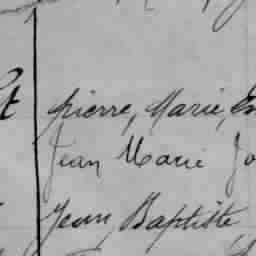 pierre, Marie,
Jean Marie
Jean, Baptiste